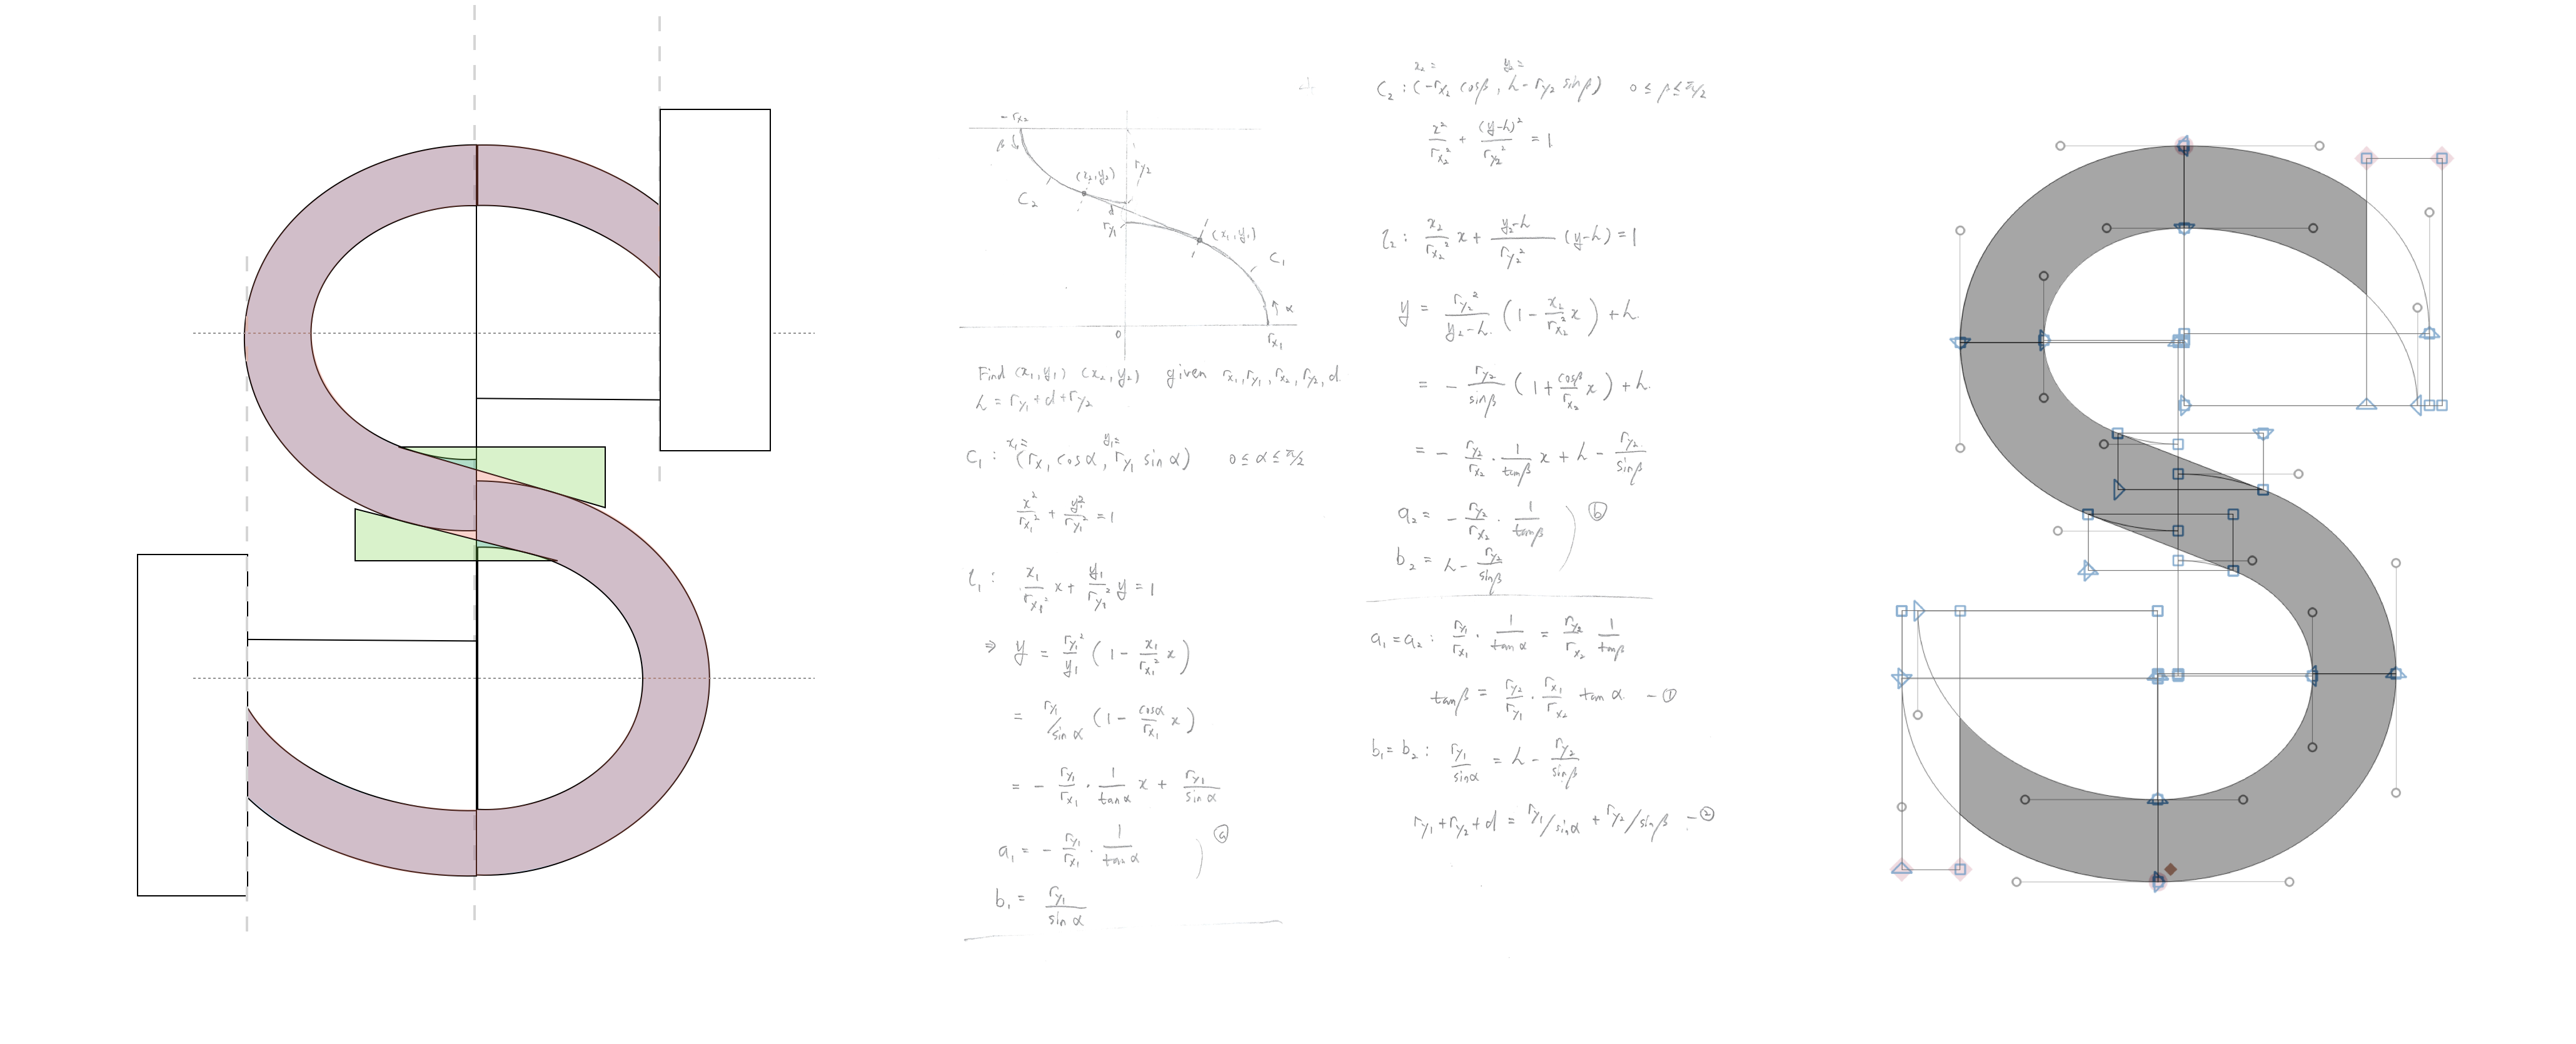 - r_x₂
β
C₂
(x₂,y₂)
r_y₂
d
r_y₁
(x₁,y₁)
C₁
α
0
r_x₁
Find (x₁,y₁) (x₂,y₂) given r_x₁, r_y₁, r_x₂, r_y₂, d.
h = r_y₁ + d + r_y₂
x₁= y₁=
C₁ : (r_x₁ cos α, r_y₁ sin α) 0 ≤ α ≤ π/2
x²/r_x₁² + y²/r_y₁² = 1
l₁ : x₁/r_x₁² x + y₁/r_y₁² y = 1
⇒ y = r_y₁²/y₁ (1 - x₁/r_x₁² x)
= r_y₁/sin α (1 - cos α/r_x₁ x)
= - r_y₁/r_x₁ · 1/tan α x + r_y₁/sin α
a₁ = - r_y₁/r_x₁ · 1/tan α
b₁ = r_y₁/sin α
ⓐ
x₂= y₂=
C₂ : (-r_x₂ cos β, h - r_y₂ sin β) 0 ≤ β ≤ π/2
x²/r_x₂² + (y-h)²/r_y₂² = 1
l₂ : x₂/r_x₂² x + y₂-h/r_y₂² (y-h) = 1
y = r_y₂²/y₂-h (1 - x₂/r_x₂² x) + h.
= - r_y₂/sin β (1 + cos β/r_x₂ x) + h.
= - r_y₂/r_x₂ · 1/tan β x + h - r_y₂/sin β
a₂ = - r_y₂/r_x₂ · 1/tan β
b₂ = h - r_y₂/sin β
ⓑ
a₁ = a₂ : r_y₁/r_x₁ · 1/tan α = r_y₂/r_x₂ 1/tan β
tan β = r_y₂/r_y₁ · r_x₁/r_x₂ tan α. - ①
b₁ = b₂ : r_y₁/sin α = h - r_y₂/sin β
r_y₁ + r_y₂ + d = r_y₁/sin α + r_y₂/sin β - ②